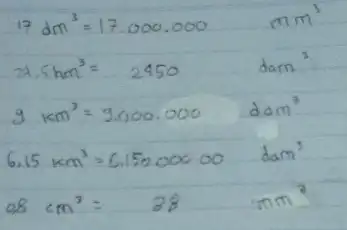 17 dm³ = 17.000.000 mm³
hm³ = 2450 dam³
9 km³ = 9.000.000 dam³
6,15 km³ = 6.150.000 00 dam³
cm³ = mm³